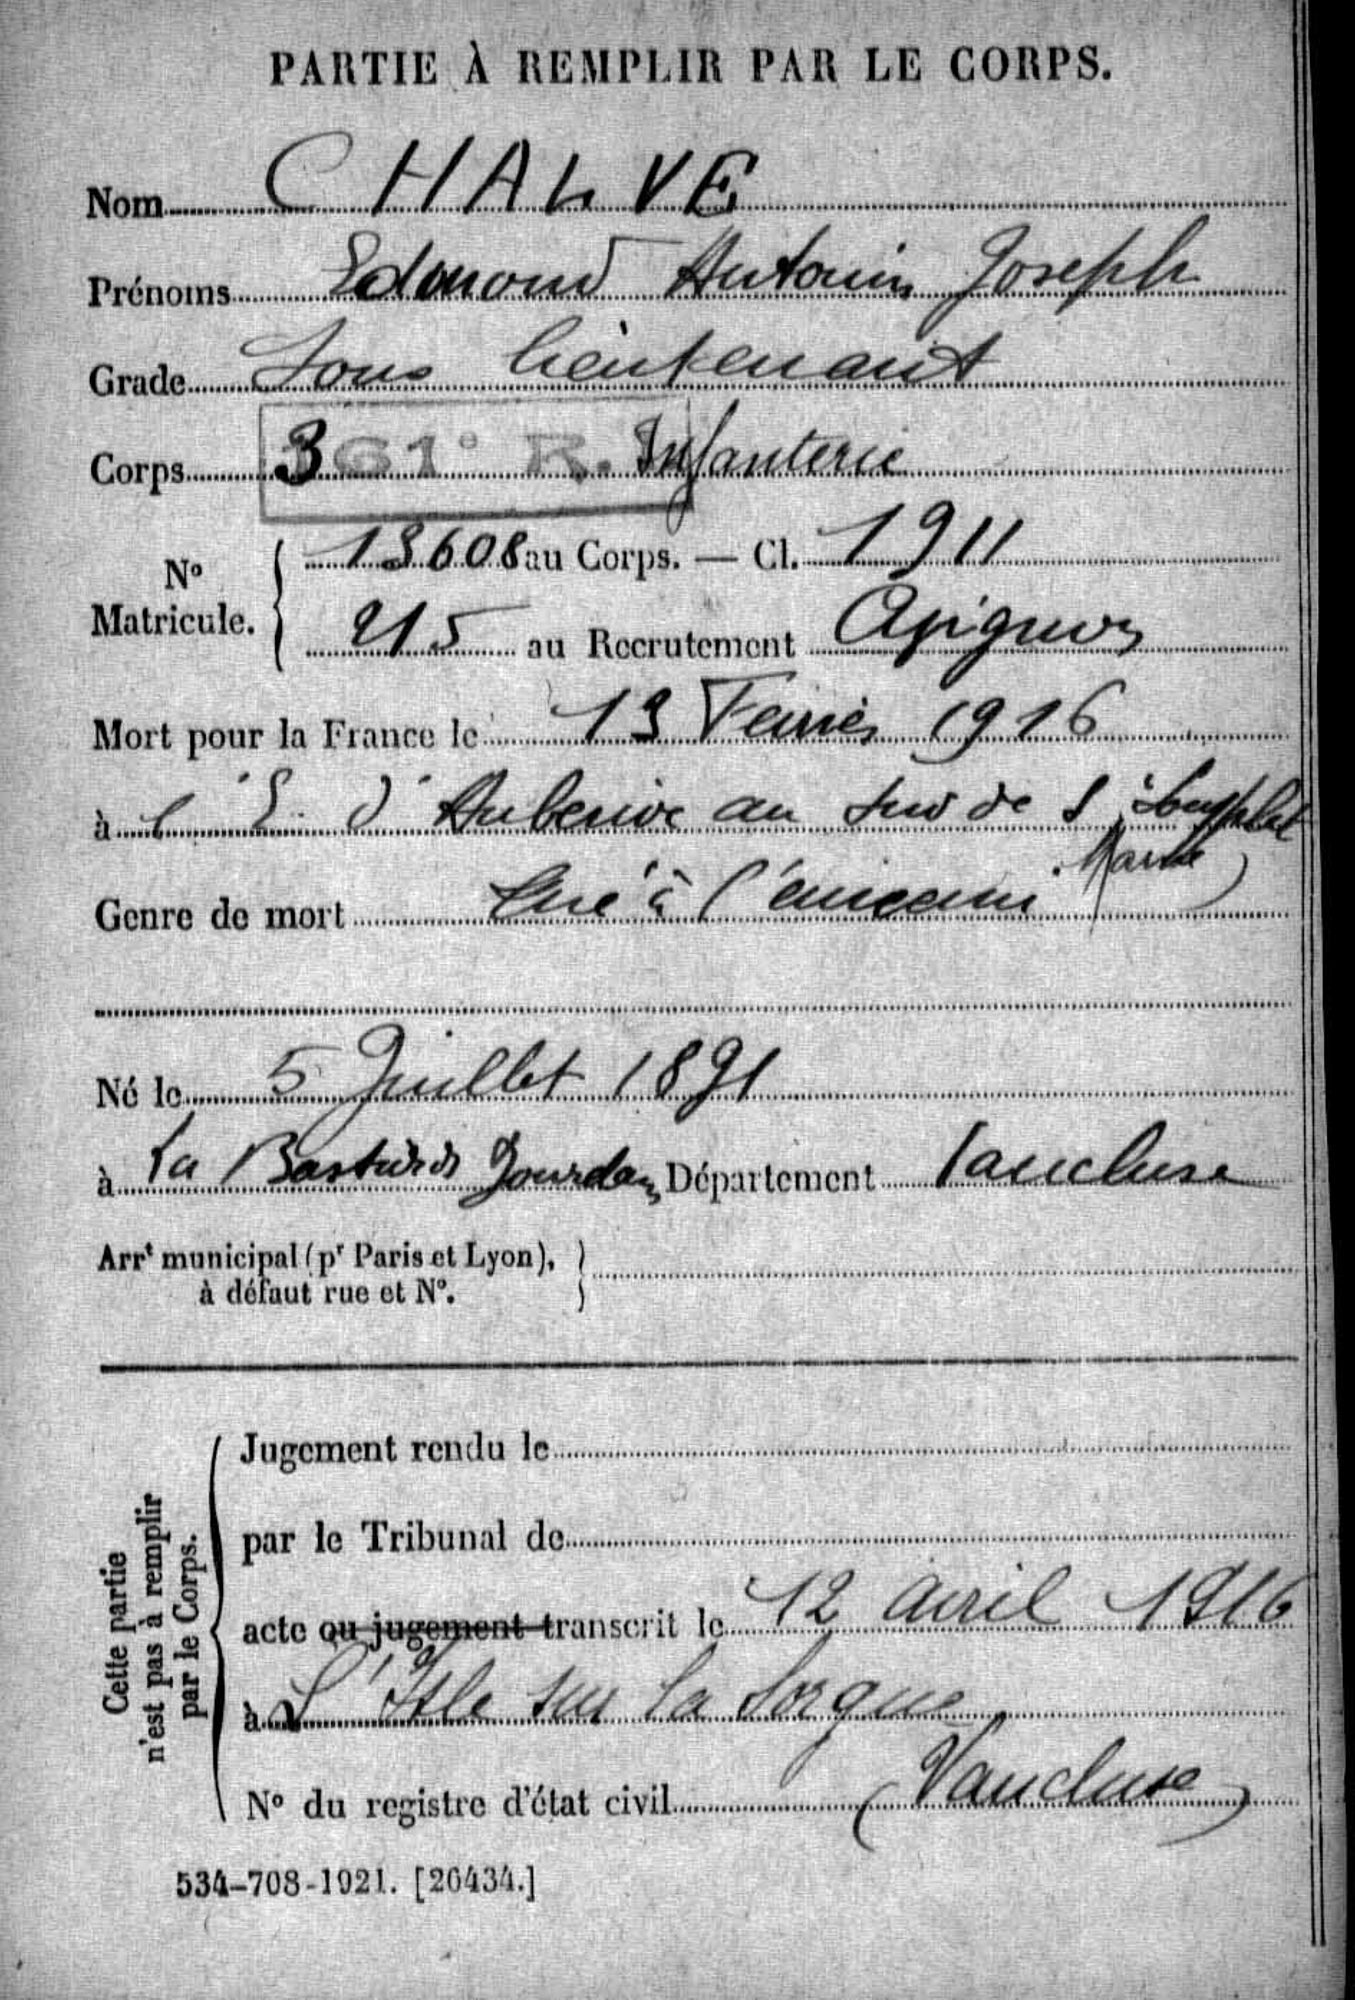 PARTIE À REMPLIR PAR LE CORPS.
Nom CHALVE
Prénoms Edmond Antonin Joseph
Grade Sous lieutenant
Corps 361e R. Infanterie
No Matricule. 13608 au Corps. — Cl. 1911
215 au Recrutement Avignon
Mort pour la France le 13 Fevrier 1916
à l'E. d'Auberive au sud de St Souplet
Marne)
Genre de mort tué à l'ennemi
Né le 5 Juillet 1891
à La Bastide des Jourdans Département Vaucluse
Arrt municipal (pr Paris et Lyon),
à défaut rue et No.
Cette partie n'est pas à remplir par le Corps.
Jugement rendu le
par le Tribunal de
acte ou jugement transcrit le 12 avril 1916
à L'Isle sur la Sorgue
No du registre d'état civil (Vaucluse)
534-708-1921. [26434.]